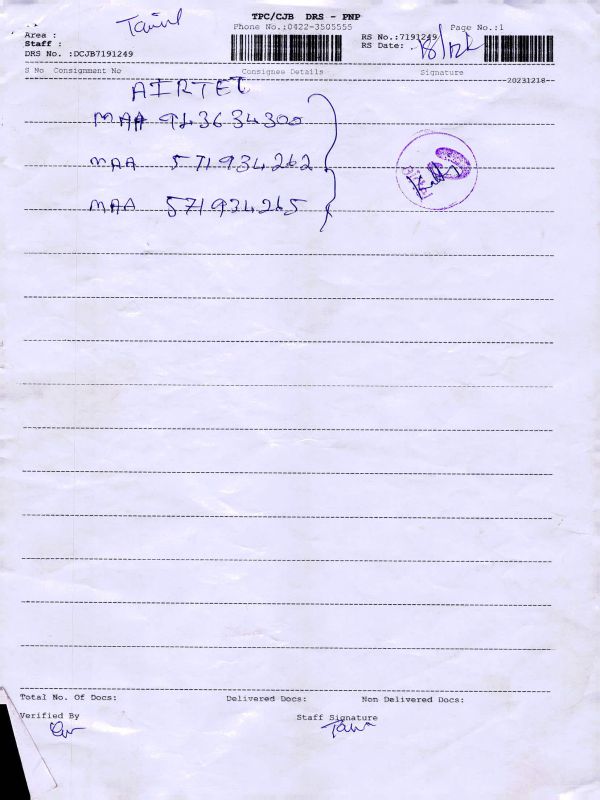 TPC/CJB DRS - PNP
Tamil
Area :
Phone No.:0422-3505555
Page No.:1
Staff :
RS No.:7191249
DRS No. :DCJB7191249
RS Date: 18/12
S No Consignment No
Consignee Details
Signature
20231218
AIRTEL
MAA 943634300
MAA 571934262
MAA 571934265
Total No. Of Docs:
Delivered Docs:
Non Delivered Docs:
Verified By
Staff Signature